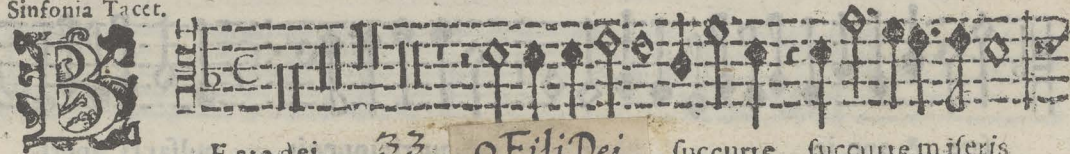 Sinfonia Tacet.
B
dei 33 O Fili Dei succurre succurre miseris